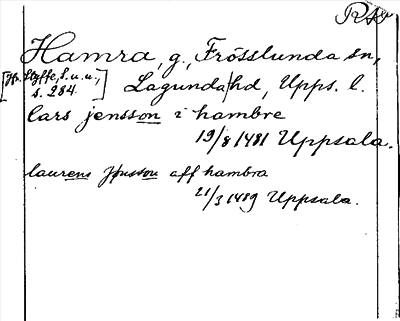 RA
Hamra, g., Frösslunda sn,
[Jfr Styffe, S.u.u., s. 284.] Lagunda hd, Upps. l.
lars jensson i hambre
19/8 1481 Uppsala.
laurens Jönsson aff hambra
21/3 1489 Uppsala.